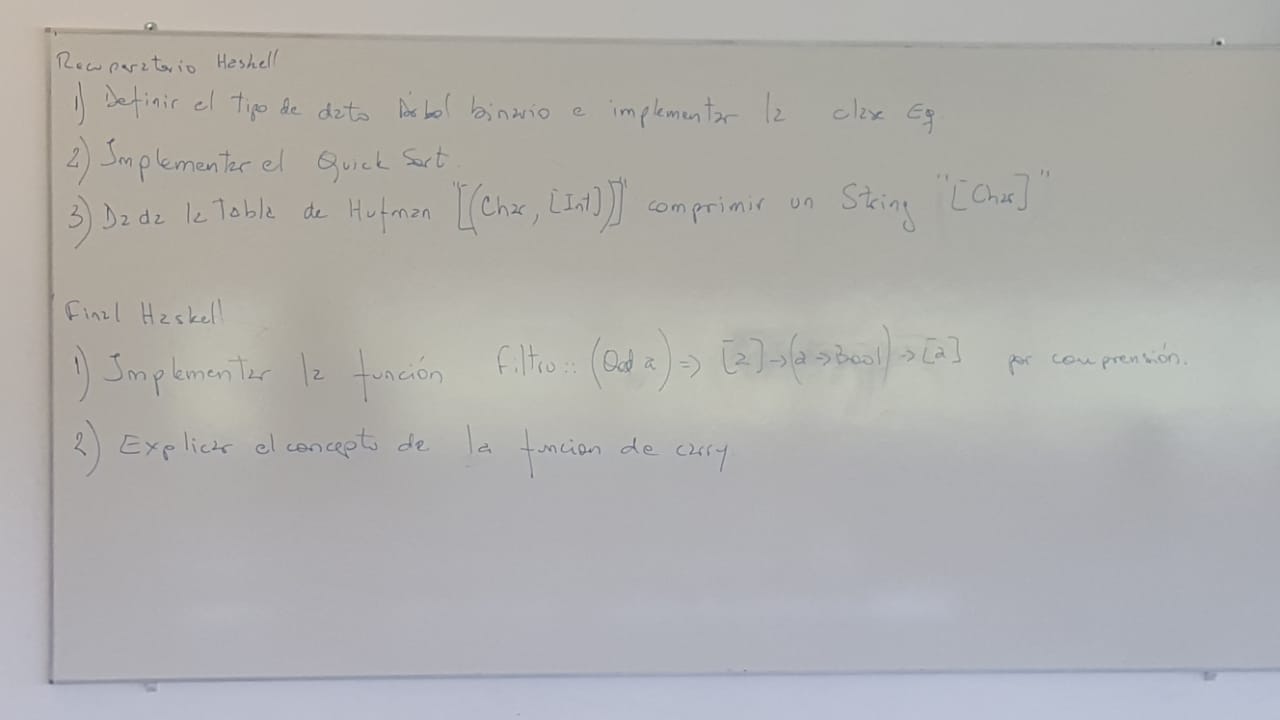 Recuperatorio Haskell
1) Definir el tipo de dato Árbol binario e implementar la clase Eq
2) Implementar el Quick Sort.
3) Dada la Tabla de Hufman "[(Char, [Int])]" comprimir un String "[Char]"
Final Haskell
1) Implementar la función filtro:: (Ord a) => [a] -> (a -> Bool) -> [a] por comprensión.
2) Explicar el concepto de la funcion de curry